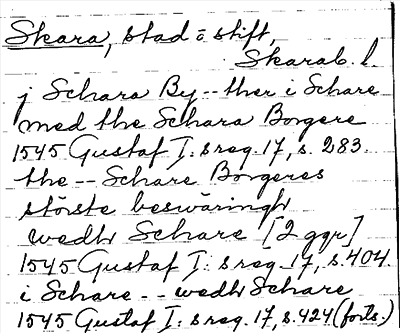 Skara, stad o stift,
Skarab. l
j Schara By -- ther i Schare
med the Schara Borgere
1545 Gustaf I: s reg. 17, s. 283.
the -- Schare Borgeres
störste beswäringh
wedh Schare [2 ggr]
1545 Gustaf I: s reg. 17, s. 404.
i Schare -- wedh Schare
1545 Gustaf I: s reg. 17, s. 424 (forts.)